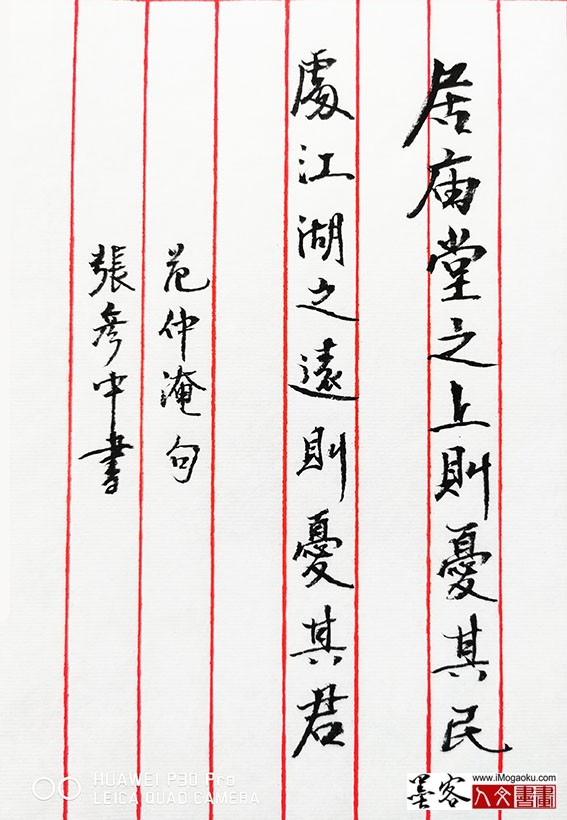 居庙堂之上則憂其民
處江湖之遠則憂其君
范仲淹句
張彦中書
HUAWEI P30 Pro
LEICA QUAD CAMERA
墨客
www.iMogaoku.com
人文書畫